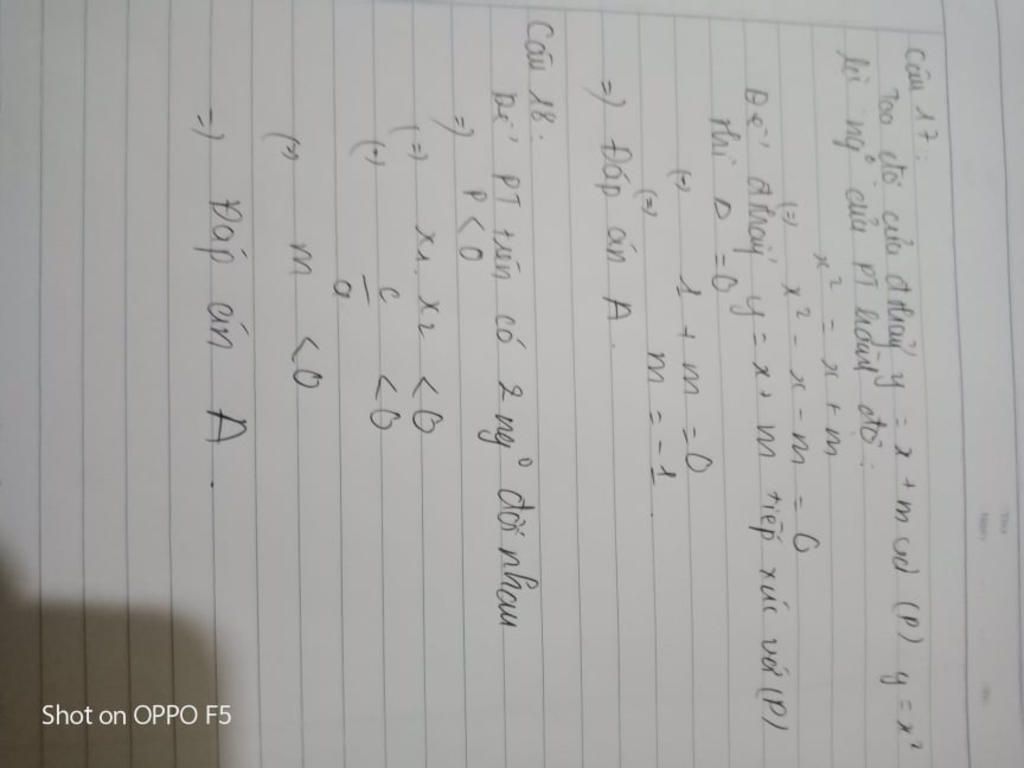 Câu 17:
Tọa độ của đthẳg y = x + m và (P) y = x²
là ng° của PT hoành độ:
x² = x + m
(=) x² - x - m = 0
Để đthẳg y = x + m tiếp xúc với (P)
thì Δ = 0
(=) 1 + m = 0
(=) m = -1.
=) Đáp án A.
Câu 18.
Để PT trên có 2 ng° đối nhau
=) P < 0
(=) x₁. x₂ < 0
(=) c/a < 0
(=) m < 0
=) Đáp án A.
Shot on OPPO F5